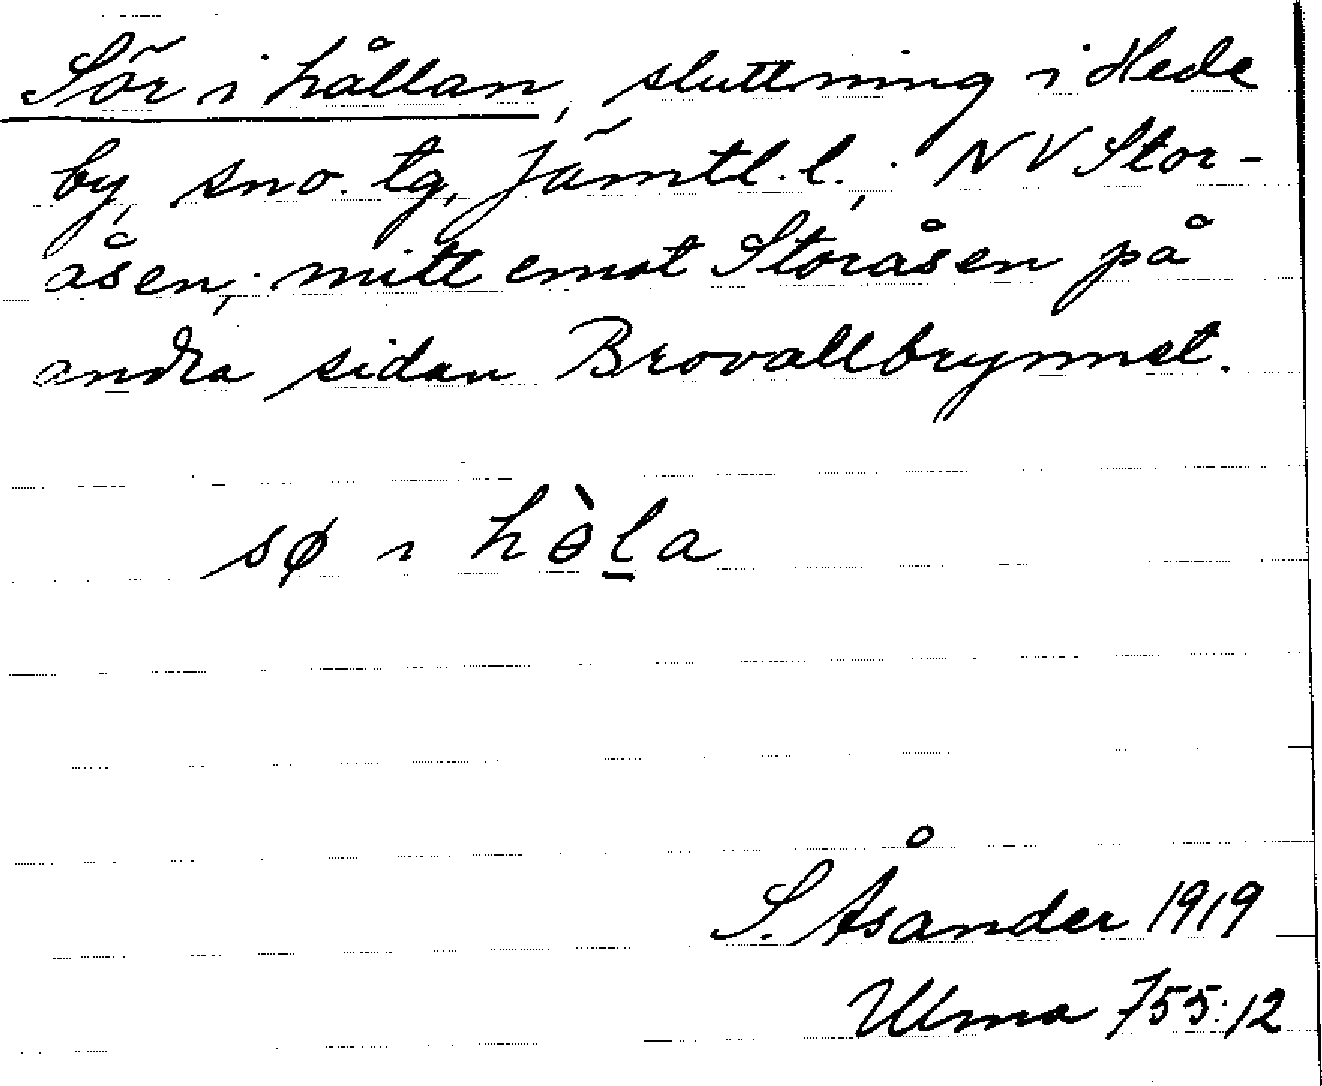 Sör i hållan, sluttning i Hede
by, sno. tg, Jämtl. l., NV Stor-
åsen, mitt emot Storåsen på
andra sidan Brovallbrynnet.
sø ı hòl̲a
S. Åsander 1919
Ulma 755:12